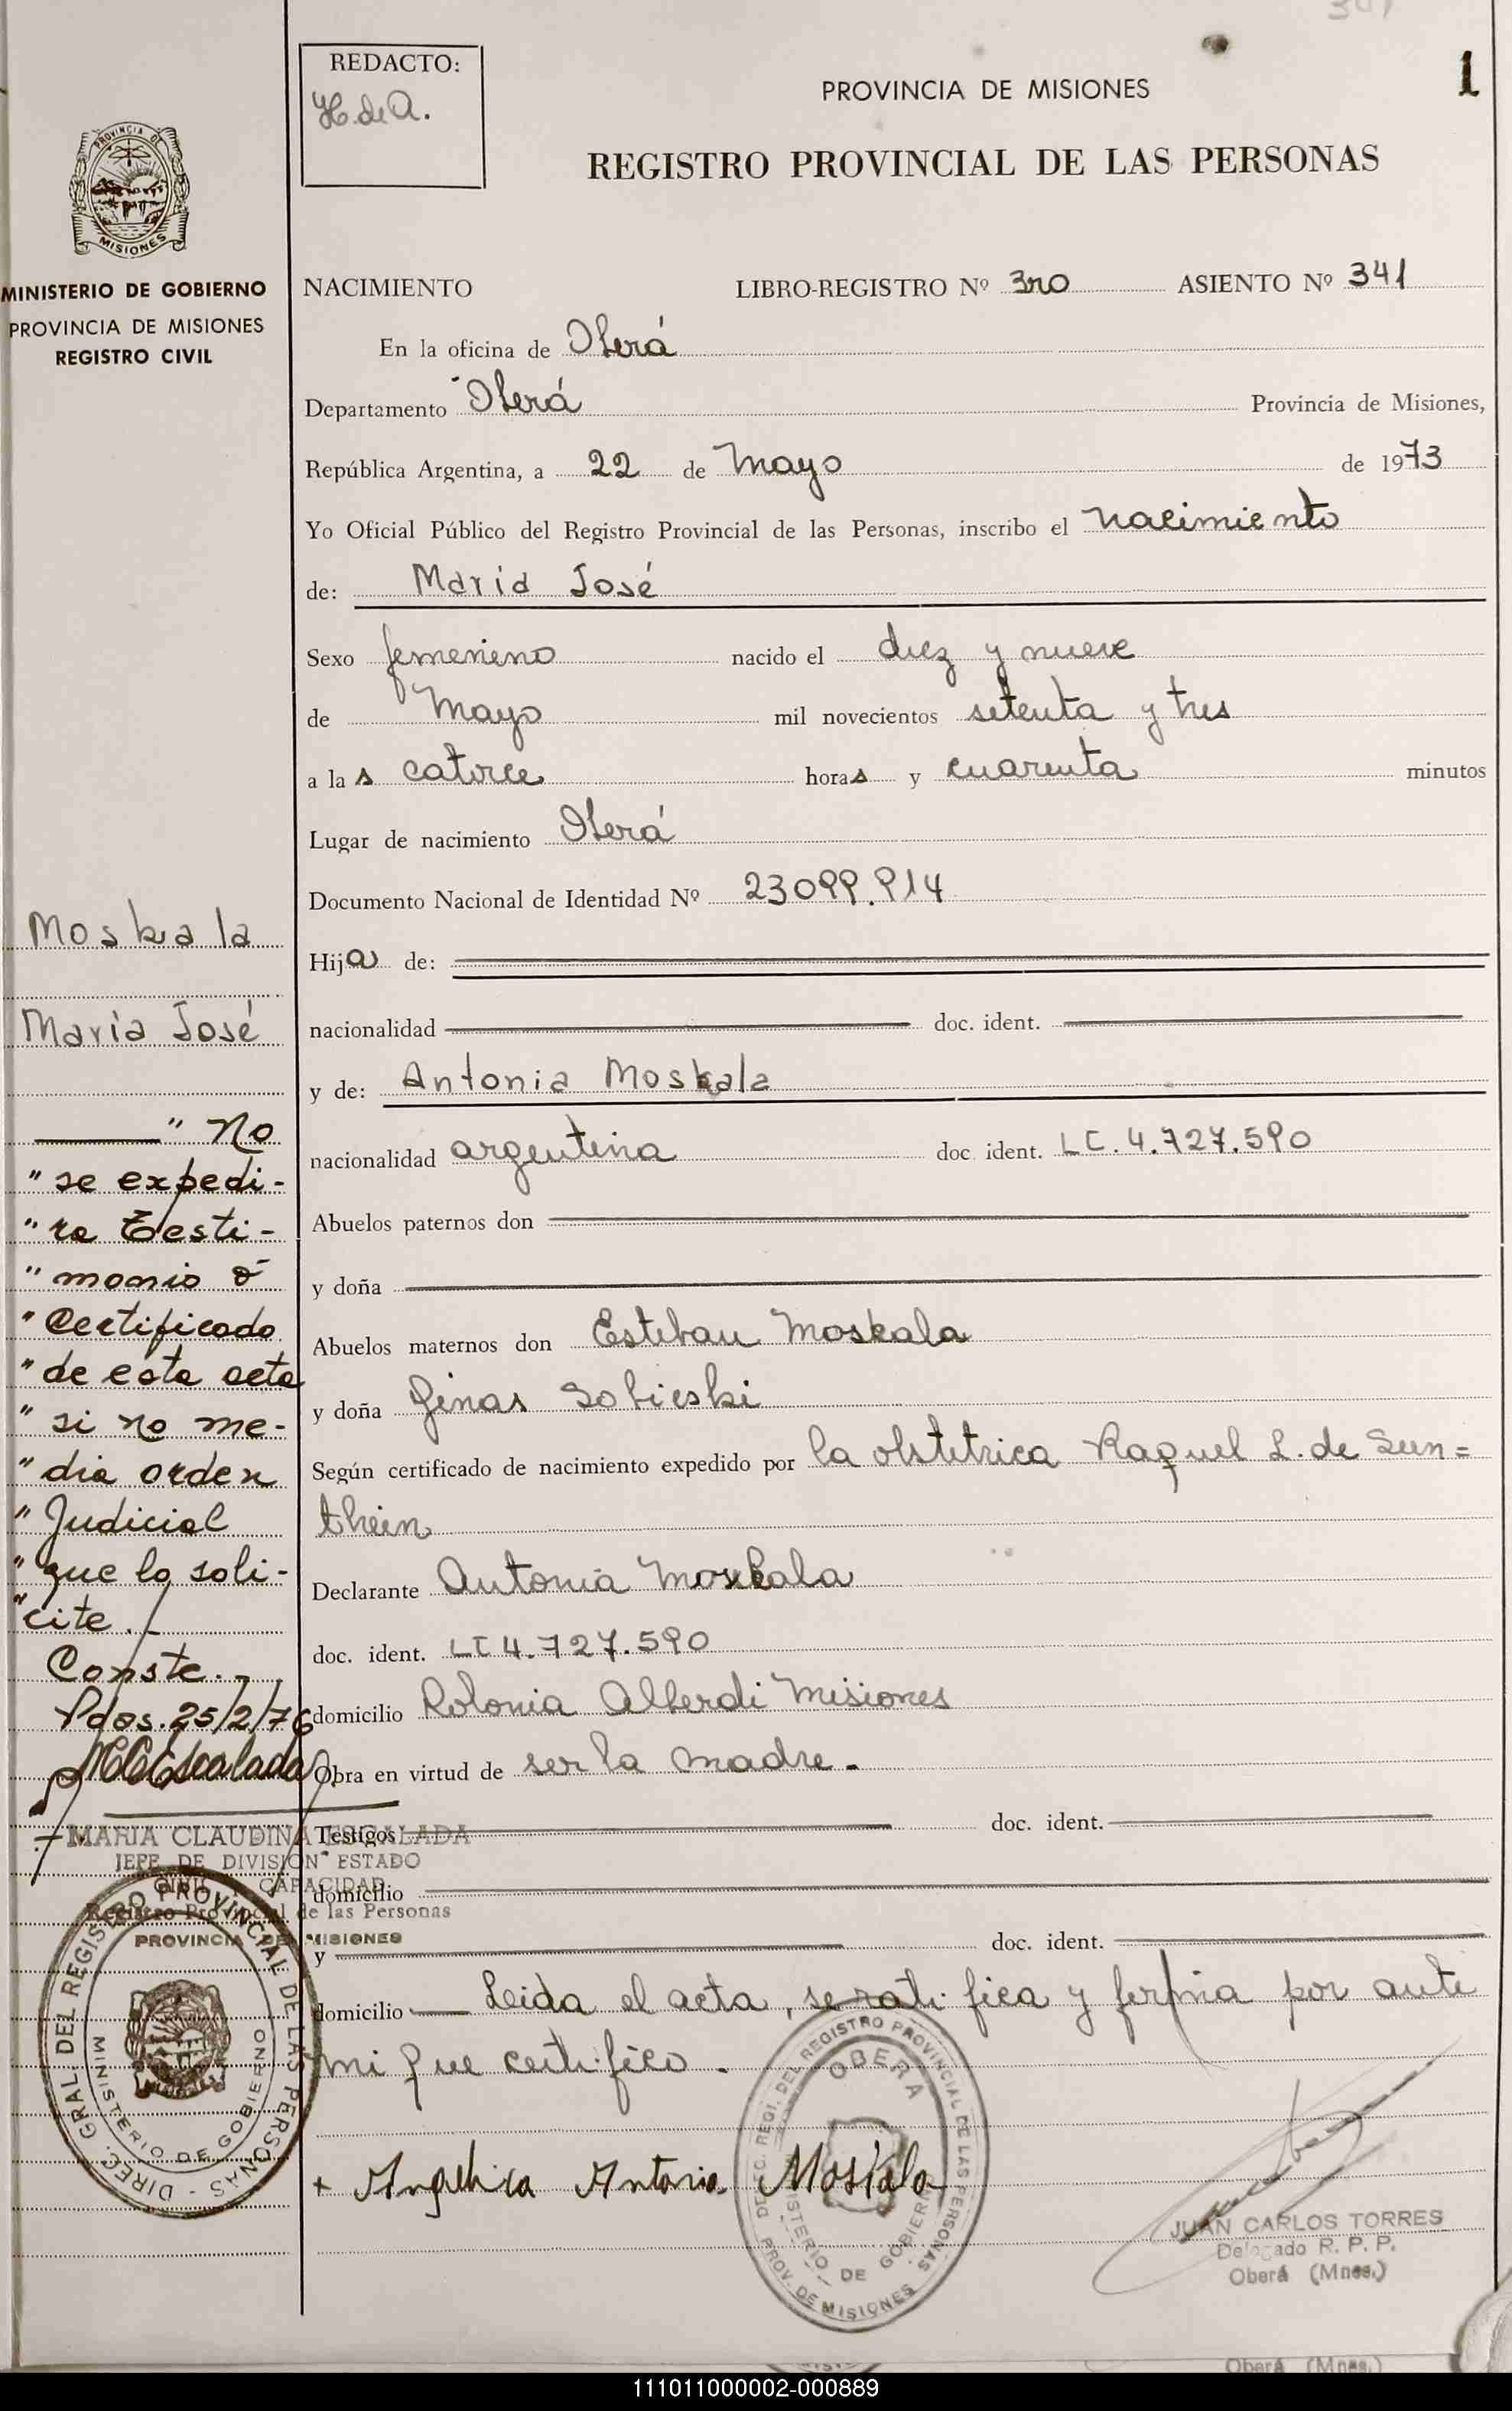 341
REDACTO:
H. de A.
PROVINCIA DE MISIONES
1
REGISTRO PROVINCIAL DE LAS PERSONAS
PROVINCIA DE
MISIONES
MINISTERIO DE GOBIERNO
PROVINCIA DE MISIONES
REGISTRO CIVIL
NACIMIENTO LIBRO-REGISTRO Nº 3ro ASIENTO Nº 341
En la oficina de Oberá
Departamento Oberá Provincia de Misiones,
República Argentina, a 22 de Mayo de 1973
Yo Oficial Público del Registro Provincial de las Personas, inscribo el nacimiento
de: Maria José
Sexo femenino nacido el diez y nueve
de Mayo mil novecientos setenta y tres
a las catorce horas y cuarenta minutos
Lugar de nacimiento Oberá
Documento Nacional de Identidad Nº 23099.914
Hija de:
nacionalidad doc. ident.
y de: Antonia Moskala
nacionalidad argentina doc ident. LC. 4.727.590
Abuelos paternos don
y doña
Abuelos maternos don Esteban Moskala
y doña Ginas Sobieski
Según certificado de nacimiento expedido por la obstetrica Raquel L. de Sun=
thein
Declarante Antonia Moskala
doc. ident. LC 4.727.590
domicilio Colonia Alberdi Misiones
Obra en virtud de ser la madre.
Testigos doc. ident.
domicilio
y doc. ident.
domicilio Leida el acta, se ratifica y firma por ante
mi que certifico.
+ Angelica Antonia Moskala
Moskala
María José
" No
" se expedi-
" ra Testi-
" monio ó
" Certificado
" de esta acta
" si no me-
" dia orden
" Judicial
" que lo soli-
" cite.
Conste.-
Pdas. 25/2/76
MCEscalada
MARIA CLAUDINA ESCALADA
JEFE DE DIVISION ESTADO
CIVIL CAPACIDAD
Registro Provincial de las Personas
PROVINCIA DE MISIONES
DIREC. GRAL. DEL REGISTRO PROVINCIAL DE LAS PERSONAS -
MINISTERIO DE GOBIERNO
DELEC. REGI. DEL REGISTRO PROVINCIAL DE LAS PERSONAS
OBERA
MINISTERIO DE GOBIERNO
PROV. DE MISIONES
JUAN CARLOS TORRES
Delegado R. P. P.
Oberá (Mnes.)
Oberá (Mnes.)
111011000002-000889